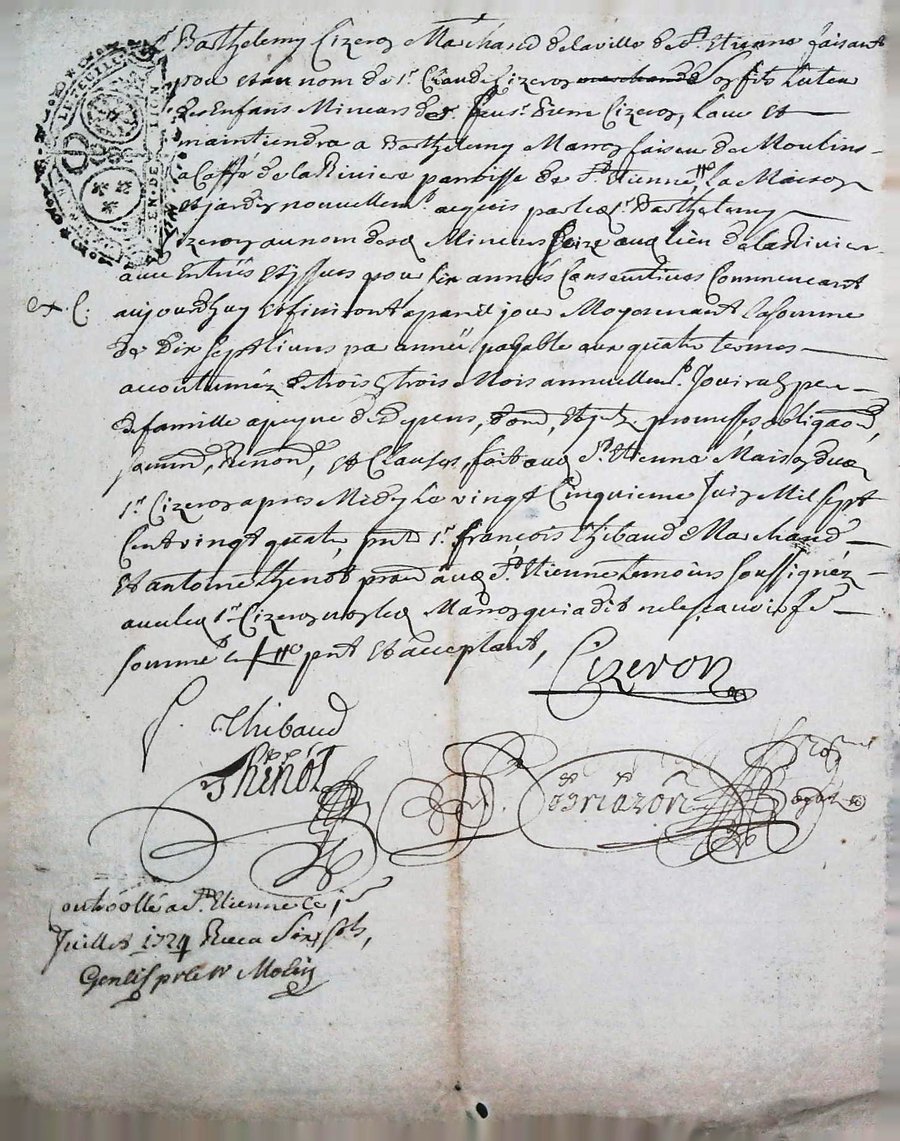 GEN. DE LION
Barthelemy Cizeron Marchand de la ville de St Etienne faisant
pour et au nom de Sr Claude Cizeron son fils tuteur
des Enfans Mineurs de Sr Cizeron, Loue et
maintiendra a Barthelemy Marron faiseur de Moulins
a Caffé de la Riviere parroisse de St Etienne, La Maison
et jardin nouvellemt acquis par led. Sr Barthelemy
Cizeron au nom desd. Mineurs size aud. lieu de la Riviere
avec Entrées et yssues pour six années Consecutives Commencant
et C.
aujourdhuy et finiront a pareil jour Moyennant la somme
de Dix Sept livres par année payable aux quatre termes
accoutuméz de trois en trois Mois annuellemt. Jouira en pere
de famille a peyne de Depens, dom., et promesses, obligaons,
Renonc., et Clauses, fait aud. St Etienne Maison dud.
Sr Cizeron apres Midy Le vingt Cinquieme Juin Mil Sept
Cent vingt quatre, pnts Sr François Thibaud Marchand
et antoine Thenot prat. aud. St Etienne temoins soussignéz
avec led. Sr Cizeron non led. Marron qui a dit ne le scavoir
sommé pnt et acceptant,
Cizeron
Thibaud
Thenot
Controollé a St Etienne Ce
Juillet 1724 Receu Six sols,